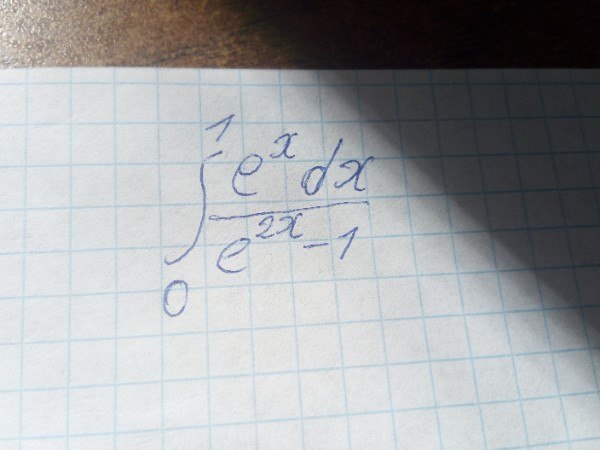 ∫₀¹ eˣdx / e²ˣ-1